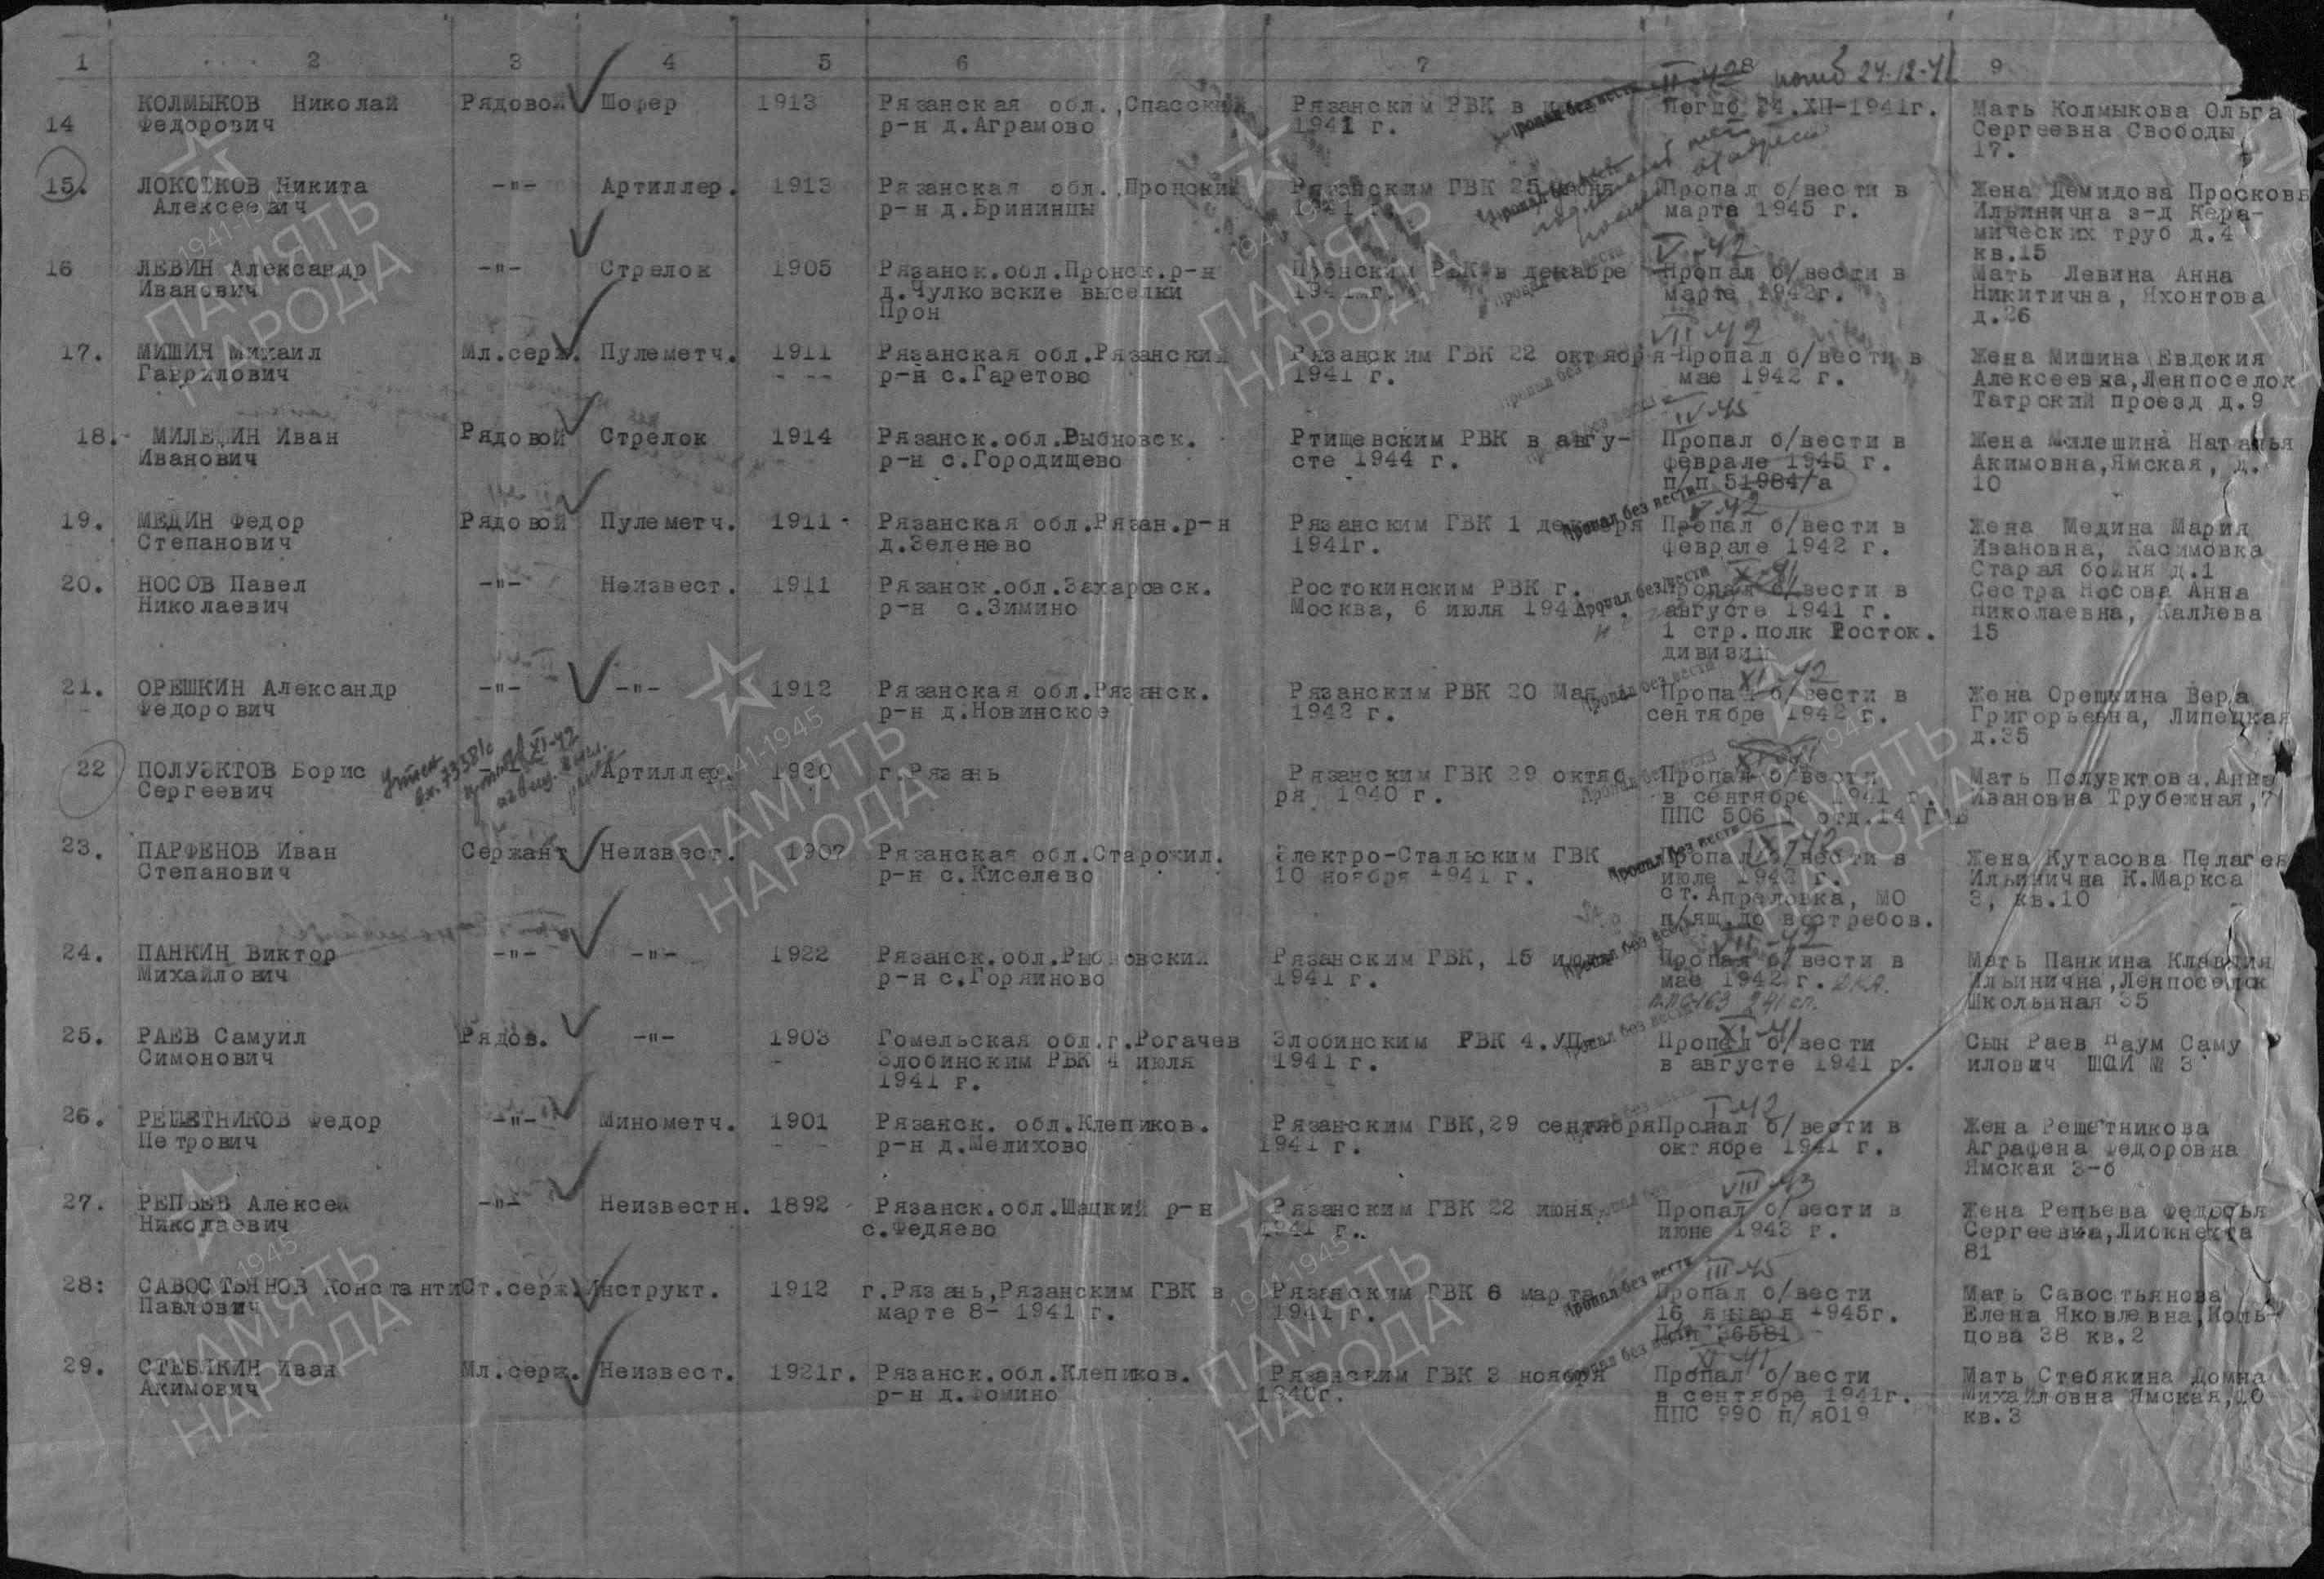 1 2 3 4 5 6 7 9
погиб 24-12-41
14 КОЛМЫКОВ Николай Федорович Рядовой Шофер 1913 Рязанская обл.,Спасский р-н д.Аграмово Рязанским РВК в 1941 г. Погиб 24.ХП-1941г. Мать Колмыкова Ольга Сергеевна Свободы 17.
15. ЛОКОТКОВ Никита Алексеевич -"- Артиллер. 1913 Рязанская обл.,Пронский р-н д.Брининцы Рязанским ГВК 25 июня 1941 г. Пропал б/вести в марте 1945 г. Жена Демидова Просковь Ильинична з-д Кера-мических труб д.4 кв.15
V-42
16 ЛЕВИН Александр Иванович -"- Стрелок 1905 Рязанск.обл.Пронск.р-н д.Чулковские выселки Прон Пронским РВК в декабре 1941 г. Пропал б/вести в марте 1942г. Мать Левина Анна Никитична, Яхонтова д.26
VII-42
17. МИШИН Михаил Гаврилович Мл.серж. Пулеметч. 1911 Рязанская обл.Рязанский р-н с.Гаретово Рязанским ГВК 22 октября 1941 г. Пропал б/вести в мае 1942 г. Жена Мишина Евдокия Алексеевна,Ленпоселок Татрский проезд д.9
IV-45
18. МИЛЕШИН Иван Иванович Рядовой Стрелок 1914 Рязанск.обл.Рыбновск. р-н с.Городищево Ртищевским РВК в авгу-сте 1944 г. Пропал б/вести в феврале 1945 г. п/п 51984/а Жена Милешина Наталья Акимовна,Ямская, д. 10
V-42
19. МЕДИН Федор Степанович Рядовой Пулеметч. 1911 Рязанская обл.Рязан.р-н д.Зеленево Рязанским ГВК 1 декабря 1941г. Пропал без вести Пропал б/вести в феврале 1942 г. Жена Медина Мария Ивановна, Касимовка Старая бойня д.1
X-41
20. НОСОВ Павел Николаевич -"- Неизвест. 1911 Рязанск.обл.Захаровск. р-н с.Зимино Ростокинским РВК г. Москва, 6 июля 194 г. Пропал без вести Пропал б/вести в августе 1941 г. 1 стр.полк Росток. дивизии Сестра Носова Анна Николаевна, Каляева 15
XI-42
21. ОРЕШКИН Александр Федорович -"- -"- 1912 Рязанская обл.Рязанск. р-н д.Новинское Рязанским РВК 20 Мая 1942 г. Пропал без вести Пропал б/вести в сентябре 1942 г. Жена Орешкина Вера Григорьевна, Липецкая д.35
22 ПОЛУЭКТОВ Борис Сергеевич Артиллер. 1920 г.Рязань Рязанским ГВК 29 октяб ря 1940 г. Пропал б/вести в сентябре 1941 г. ППС 506 отд.14 Мать Полуэктова Анна Ивановна Трубежная,7
IX-42
23. ПАРФЕНОВ Иван Степанович Сержант Неизвест. 1907 Рязанская обл.Старожил. р-н с.Киселево Электро-Стальским ГВК 10 ноября 1941 г. Пропал без вести Пропал б/вести в июле 1942 г. ст.Апрелевка, МО п/ящ.до востребов. Жена Кутасова Пелагея Ильинична К.Маркса 3, кв.10
VII-42
24. ПАНКИН Виктор Михайлович -"- -"- 1922 Рязанск.обл.Рыбновский р-н с.Горяиново Рязанским ГВК, 15 июля 1941 г. Пропал без вести Пропал б/вести в мае 1942 г. Мать Панкина Клавдия Ильинична,Ленпоселок Школьнная 35
XI-41
25. РАЕВ Самуил Симонович Рядов. -"- 1903 Гомельская обл.г.Рогачев Злобинским РВК 4 июля 1941 г. Злобинским РВК 4.УП- 1941 г. Пропал б/вести в августе 1941 г. Сын Раев Наум Саму илович № 3
I-42
26. РЕШЕТНИКОВ Федор Петрович -"- Минометч. 1901 Рязанск. обл.Клепиков. р-н д.Мелихово Рязанским ГВК,29 сентября 1941 г. Пропал б/вести в октябре 1941 г. Жена Решетникова Аграфена Федоровна Ямская 3-б
VIII-43
27. РЕПЬЕВ Алексей Николаевич -"- Неизвестн. 1892 Рязанск.обл.Шацкий р-н с.Федяево Рязанским ГВК 22 июня 1941 г. Пропал б/вести в июне 1943 г. Жена Репьева Федосья Сергеевна,Либкнехта 81
III-45
28: САВОСТЬЯНОВ Константи Павлович Ст.серж. Инструкт. 1912 г.Рязань,Рязанским ГВК в марте 8- 1941 г. Рязанским ГВК 8 марта 1941 г. Пропал без вести Пропал б/вести 15 января 1945г. 36581 Мать Савостьянова Елена Яковлевна,Коль-цова 38 кв.2
XI-41
29. СТЕБЯКИН Иван Акимович Мл.серж. Неизвест. 1921г. Рязанск.обл.Клепиков. р-н д.Фомино Рязанским ГВК 3 ноября 1940г. Пропал б/вести в сентябре 1941г. ППС 990 п/я019 Мать Стебякина Домна Михайловна Ямская,10 кв.3
1941-1945
ПАМЯТЬ
НАРОДА